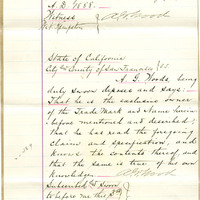 A.D. 1888.
Witness
A. G. Woods
State of California
City and County of San Francisco } SS.
A. G. Woods, being
duly sworn deposes and says:—
That he is the exclusive owner
of the Trade Mark and Name herein
before mentioned and described;
that he has read the foregoing
claim and specification, and
knows the contents thereof and
that the same is true of his own
knowledge. A. G. Woods
Subscribed & Sworn
to before me this